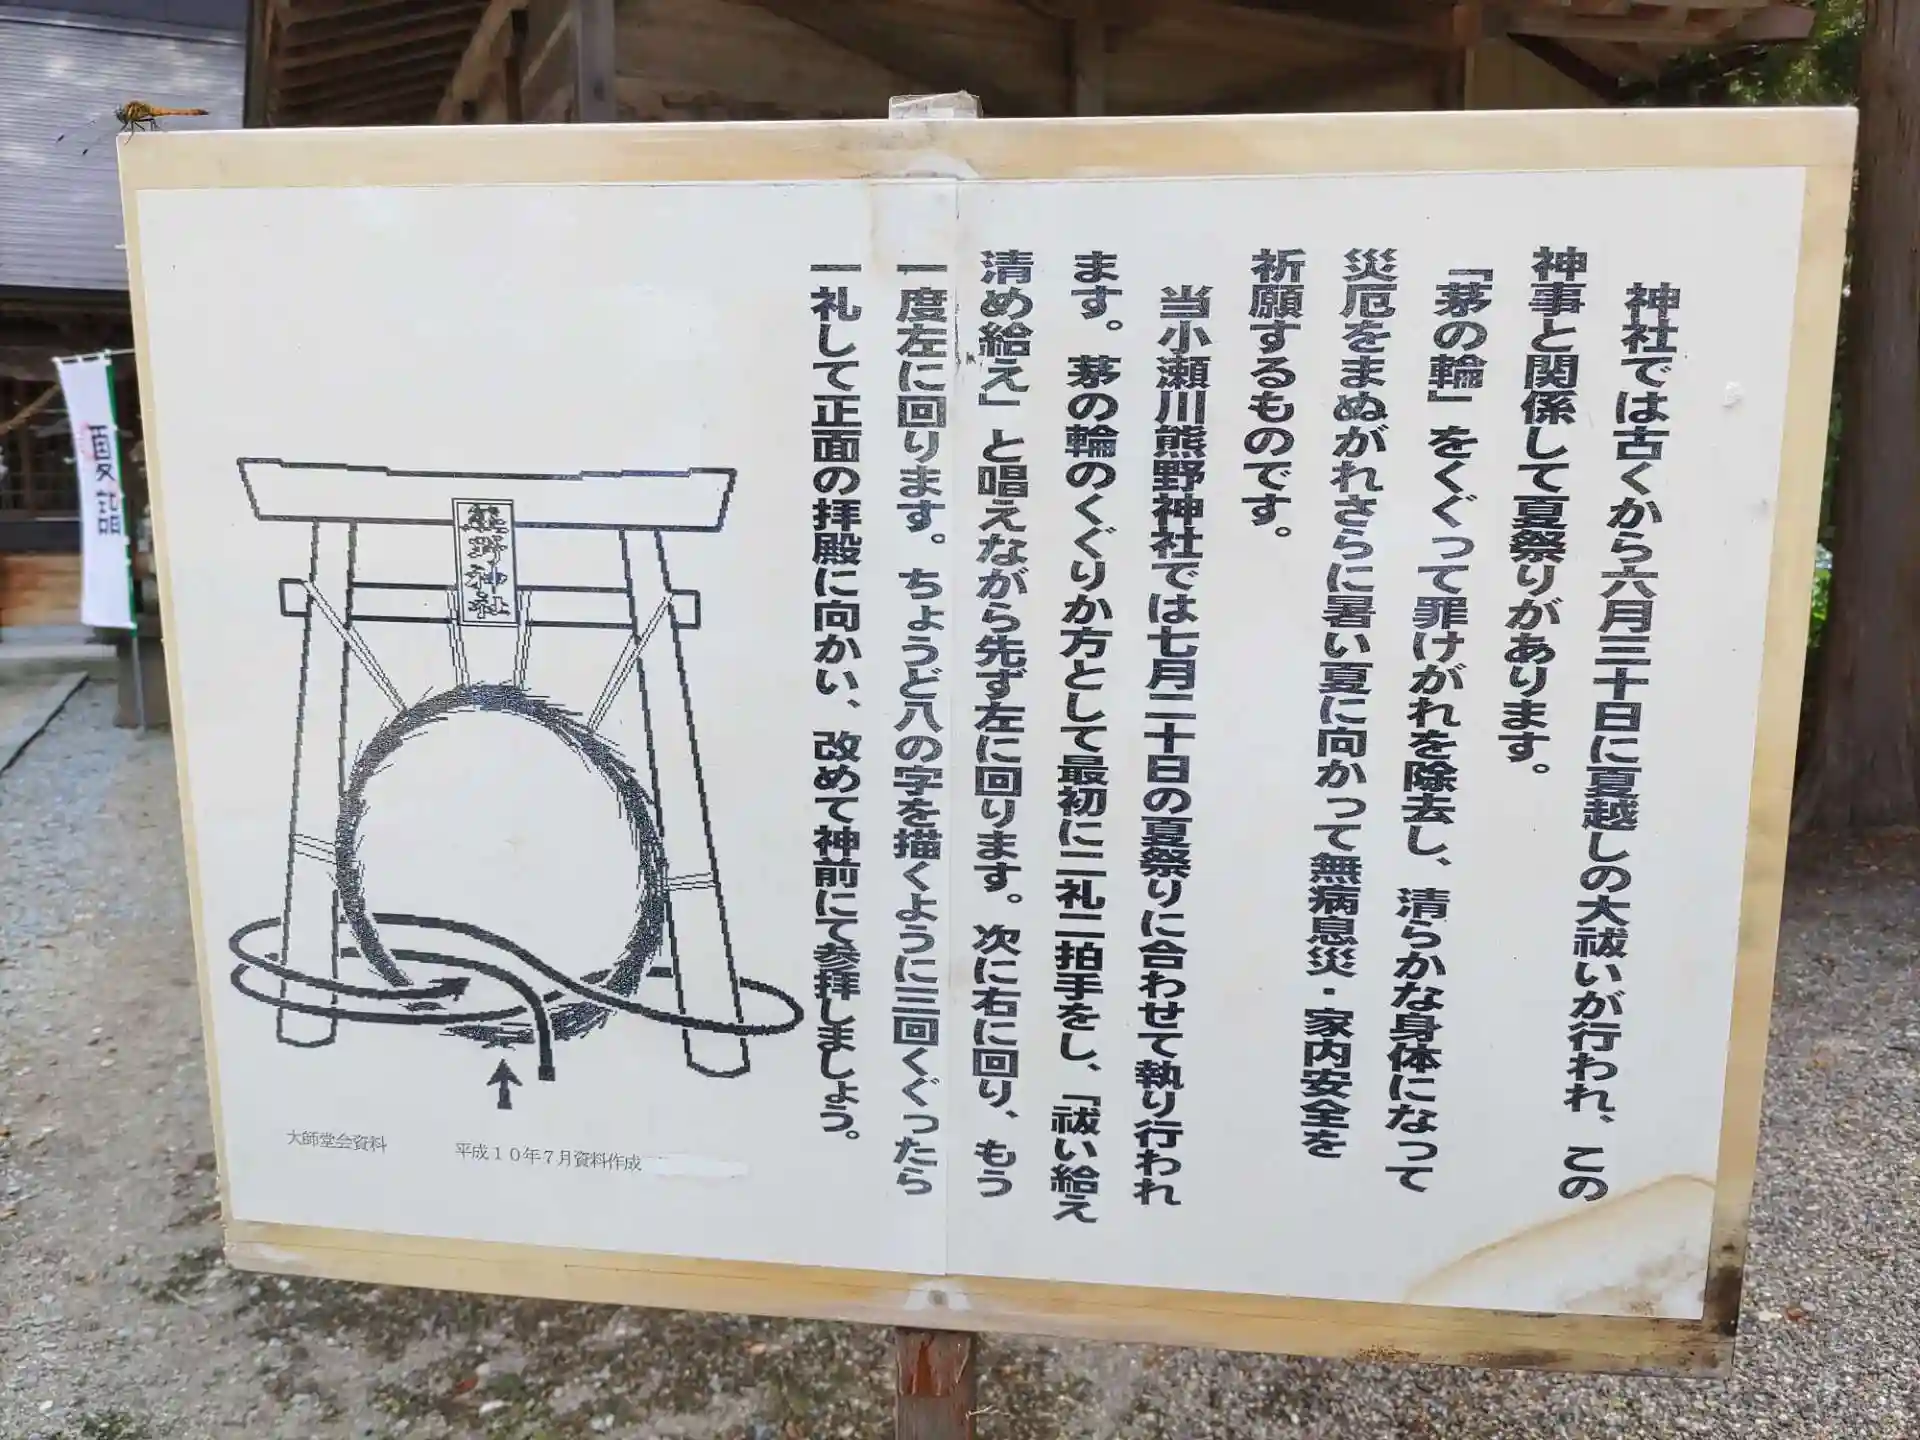 神社では古くから六月三十日に夏越しの大祓いが行われ、この
神事と関係して夏祭りがあります。
「茅の輪」をくぐって罪けがれを除去し、清らかな身体になって
災厄をまぬがれさらに暑い夏に向かって無病息災・家内安全を
祈願するものです。
当小瀬川熊野神社では七月二十日の夏祭りに合わせて執り行われ
ます。茅の輪のくぐりか方として最初に二礼二拍手をし、「祓い給え
清め給え」と唱えながら先ず左に回ります。次に右に回り、もう
一度左に回ります。ちょうど八の字を描くように三回くぐったら
一礼して正面の拝殿に向かい、改めて神前にて参拝しましょう。
熊野神社
大師堂会資料
平成10年7月資料作成
夏詣